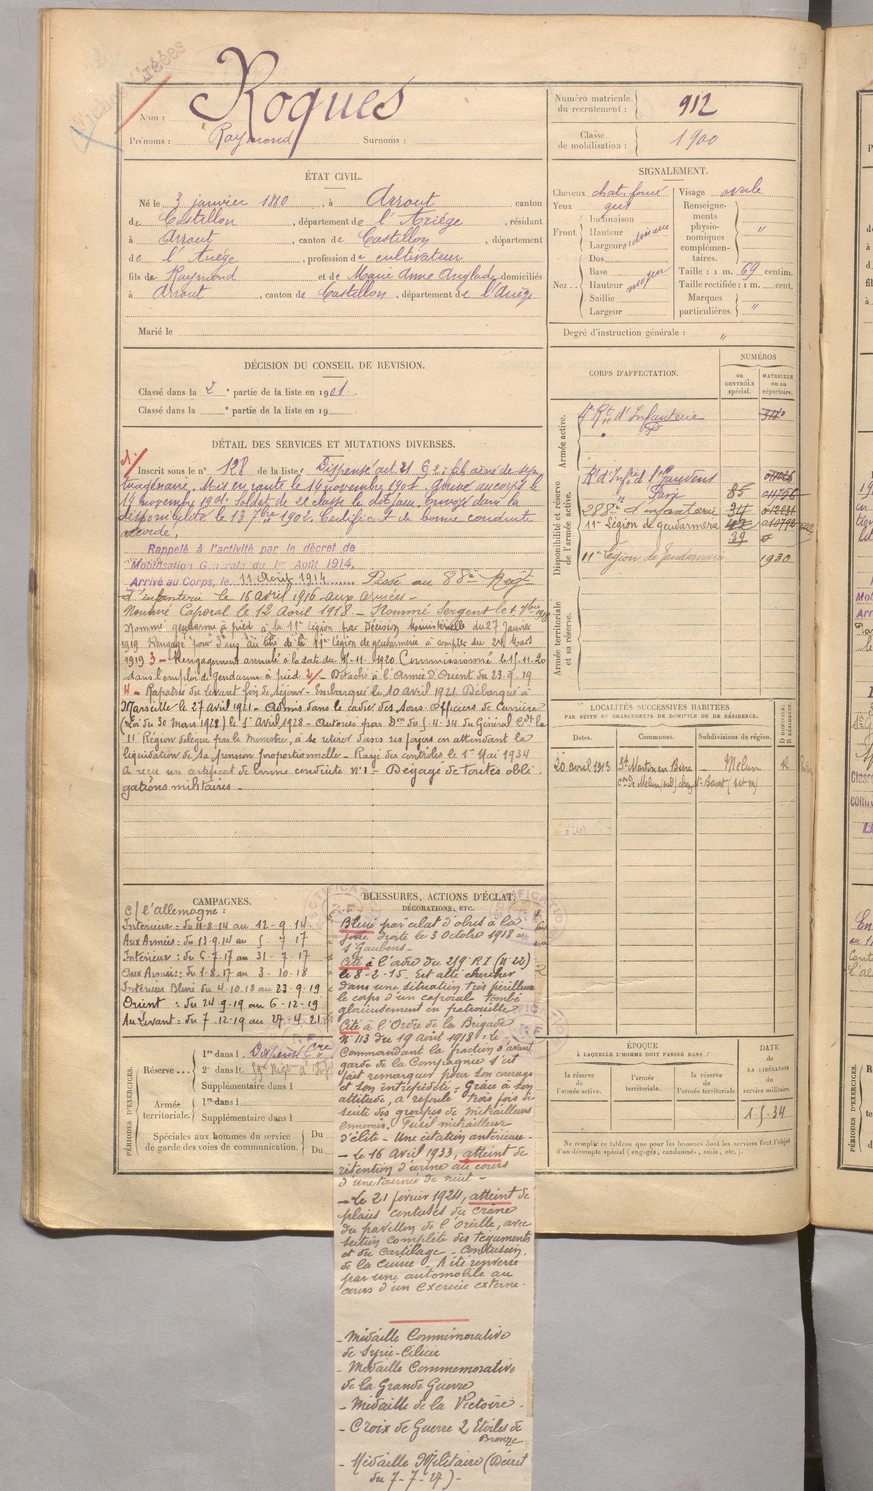 Nom : Roques
Prénoms : Raymond Surnoms :
Numéro matricule
du recrutement : 912
Classe
de mobilisation : 1900
ÉTAT CIVIL.
Né le 3 janvier 1880, à Arrout canton
de Castillon, département de l'Ariège, résidant
à Arrout, canton de Castillon, département
de l'Ariège, profession de cultivateur
fils de Raymond et de Marie Anne Anglade domiciliés
à Arrout, canton de Castillon, département de l'Ariège
Marié le
SIGNALEMENT.
Cheveux chat. foncé Visage ovale
Yeux gris
Front. Inclinaison
Hauteur
Largeur ordinaire
Nez. Dos
Base
Hauteur moyen
Saillie
Largeur
Renseignements
physionomiques
complémentaires. "
Taille : 1 m. 69 centim.
Taille rectifiée : 1 m. cent.
Marques
particulières. "
Degré d'instruction générale : "
DÉCISION DU CONSEIL DE REVISION.
Classé dans la 2e partie de la liste en 1901.
Classé dans la e partie de la liste en 19
DÉTAIL DES SERVICES ET MUTATIONS DIVERSES.
1/ Inscrit sous le n° 128 de la liste. Dispensé art 21 § 2 : fils aîné de sep
tuagénaire. Mis en route le 14 novembre 1901. Arrivé au corps le
14 novembre 1901. Soldat de 2e classe le dit jour. Envoyé dans la
disponibilité le 13 7bre 1902. Certificat de bonne conduite
accordé.
Rappelé à l'activité par le décret de
Mobilisation Générale du 1er Août 1914.
Arrivé au Corps, le 11 Août 1914 Passé au 88e Regt
d'infanterie le 16 avril 1916 - aux armées -
Nommé Caporal le 12 Avril 1918 - Nommé Sergent le
Nommé gendarme à pied à la 11e légion par Décision Ministérielle du 27 Janvier
1919 Rengagé pour au titre de la 11e légion de gendarmerie à compter du Mars
1919 3 - Rengagement annulé à la date du 1-11-1920 Commissionné le 1-11-20
dans l'emploi de gendarme à pied 2/- Détaché à l'Armée d'Orient du 23-9-19
4 - Rapatrié du levant fin de séjour - Embarqué le 10 avril 1921 Débarqué à
Marseille le 27 avril 1921 - Admis dans le cadre des Sous-Officiers de Carrière
(Loi du 30 Mars 1928) le 1er Avril 1928 - Autorisé par Don du 5-4-34 du Général Ct la
Région délégué par le Ministre, à se retirer dans ses foyers en attendant la
liquidation de sa pension proportionnelle - Rayé des contrôles le 1er Mai 1934
A reçu un certificat de bonne conduite N°1 - Dégagé de toutes obli
gations militaires -
CORPS D'AFFECTATION.
NUMÉROS
au
CONTRÔLE
spécial.
MATRICULE
ou au
répertoire.
Armée active.
Rt d'Infanterie
Disponibilité et réserve
de l'armée active.
Rt d'Infie de St Gaudens
" Foix 85
288e d'infanterie 34
11e Légion de gendarmerie
39
11e légion de gendarmerie 1930
Armée territoriale
et sa réserve.
LOCALITÉS SUCCESSIVES HABITÉES
PAR SUITE DE CHANGEMENTS DE DOMICILE OU DE RÉSIDENCE.
Dates. Communes. Subdivisions de région. D. DOMICILE. R. RÉSIDENCE.
20 avril 1913 St Martin en Bière - Melun R
CAMPAGNES.
c/ l'allemagne :
Intérieur : du 11-8-14 au 12-9-14
Aux Armées : du 13-9-14 au 5-7-17
Intérieur : du 6-7-17 au 31-7-17
Aux Armées : du 1-8-17 au 3-10-18
Intérieur Blessé du 4-10-18 au 23-9-19
Orient : du 24-9-19 au 6-12-19
Au Levant : du 7-12-19 au 27-4-21
BLESSURES, ACTIONS D'ÉCLAT,
DÉCORATIONS, ETC.
Blessé par éclat d'obus à la
droite le 3 Octobre 1918 -
Cité à l'ordre du 219 R.I (N° 23)
le 8-2-15. Est allé chercher
dans une situation très périlleuse
le corps d'un caporal tombé
glorieusement en patrouille
Cité à l'Ordre de la Brigade
N° 113 du 19 avril 1918 : le
Commandant la fraction d'avant
garde de la Compagnie s'est
fait remarquer pour son courage
et son intrépidité - Grâce à son
attitude, a refoulé trois fois de
suite des groupes de mitrailleurs
ennemis. Fusil mitrailleur
d'élite - Une citation antérieure -
- Le 16 Avril 1933, atteint de
rétention d'urine au cours
d'une tournée de nuit -
- Le 21 février 1924, atteint de
plaies contuses du crâne
du pavillon de l'Oreille, avec
section complète des téguments
et du Cartilage - Contusion
de la cuisse - A été renversé
par une automobile au
cours d'un Exercice externe.
- Médaille Commémorative
de Syrie-Cilicie
- Médaille Commémorative
de la Grande Guerre
- Médaille de la Victoire -
- Croix de Guerre 2 Etoiles de
Bronze
- Médaille Militaire (Décret
du 7-7-27) -
PÉRIODES D'EXERCICES.
Réserve 1re dans l. Dispensé
2e dans l
Supplémentaire dans l
Armée
territoriale. 1re dans l
Supplémentaire dans l
Spéciales aux hommes du service
de garde des voies de communication. Du
Du
ÉPOQUE
À LAQUELLE L'HOMME DOIT PASSER DANS :
la réserve
de l'armée active.
l'armée
territoriale.
la réserve
de l'armée territoriale
DATE
de
LA LIBÉRATION
du
service militaire.
1-5-34
Ne remplir ce tableau que pour les hommes dont les services font l'objet
d'un décompte spécial (engagés, condamnés, omis, etc.).